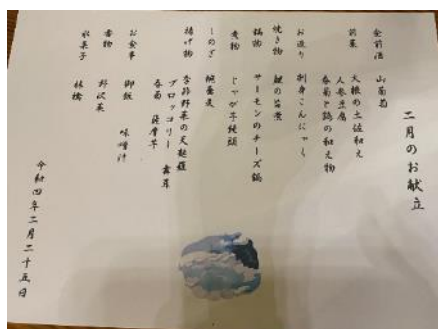 二月のお献立
食前酒 山葡萄
前菜 大根の土佐和え
人参豆腐
春菊と鶏の和え物
お造り 刺身こんにゃく
焼き物 の旨煮
鍋物 サーモンのチーズ鍋
煮物 じゃが芋饅頭
しのぎ 蕎麦
揚げ物 季節野菜の天麩羅
ブロッコリー 舞茸
春菊 薩摩芋
お食事 御飯 味噌汁
香物 野沢菜
水菓子 林檎
令和四年二月二十五日